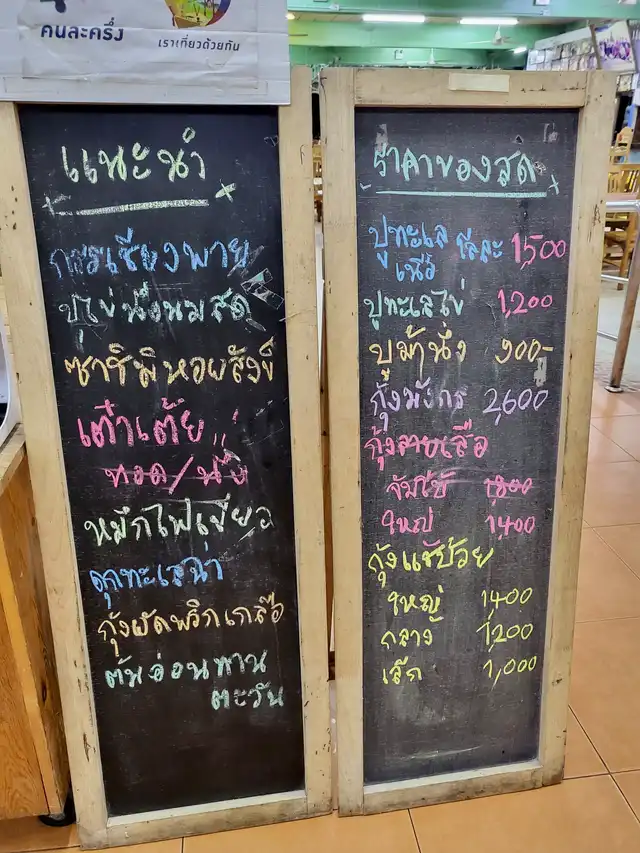 คนละครึ่ง
เราเที่ยวด้วยกัน
แนะนำ
กรรเชียงพาย
ปูไข่นึ่งนมสด
ซาชิมิหอยสังข์
เต๋าเต้ย
ทอด/นึ่ง
หมึกไฟเขียว
ดุกทะเลฉ่า
กุ้งผัดพริกเกลือ
ต้นอ่อนทาน
ตะวัน
ราคาของสด
ปูทะเล โลละ 1,500
เนื้อ
ปูทะเลไข่ 1,200
ปูม้านึ่ง 900-
กุ้งมังกร 2,600
กุ้งลายเสือ
จัมโบ้ 1,800
ใหญ่ 1,400
กุ้งแชบ๊วย
ใหญ่ 1,400
กลาง 1,200
เล็ก 1,000